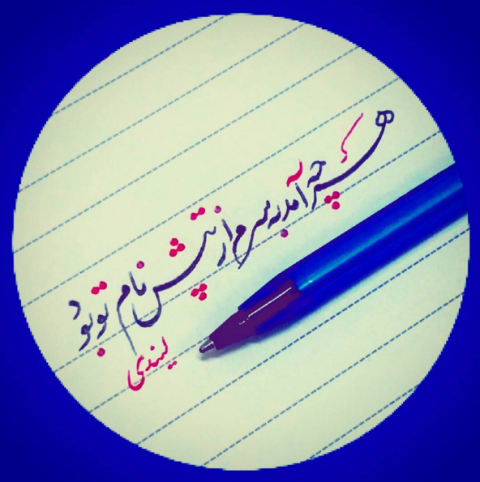 هر چه آمد به سرم از تپش نام تو بود
لیندی